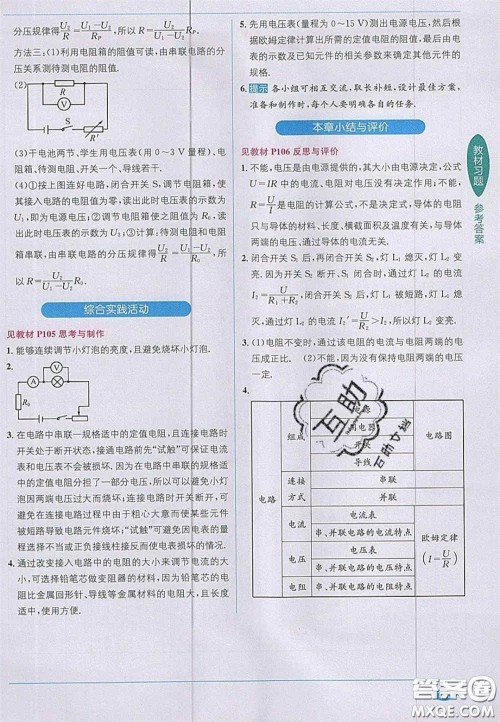 分压规律得 U₂/(U₁−U₂) = R/R_P，所以 R = U₂/(U₁−U₂) R_P.
方法三：(1)利用电阻箱的阻值可读，由串联电路的分
压关系测待测电阻的阻值.
(2)
R
V
S
R′
(3)干电池两节、学生用电压表(0～3 V 量程)、电阻
箱、待测电阻、开关一个、导线若干.
(4)①按上图连好电路，闭合开关 S，调节电阻箱，使
其接入电路的阻值为零，读出此时电压表的示数为
U₁，即为电源电压；②调节电阻箱的阻值为 R₀，读
出此时电压表的示数为 U₂；③计算：待测电阻的阻
值为 R，由串联电路的分压规律得 U₂/(U₁−U₂) = R/R₀，所
以 R = U₂/(U₁−U₂) R₀.
综合实践活动
见教材 P105 思考与制作
1. 能够连续调节小灯泡的亮度，且避免烧坏小灯泡.
2.
A
V
R₀
3. 在电路中串联一规格适中的定值电阻，且连接电路时
开关处于断开状态，接通电路前先“试触”可保证电流
表和电压表不会被烧坏. 因为在电路中串联规格适中
的定值电阻分担了一部分电压，所以可以避免小灯
泡因两端电压过大而烧坏；连接电路时开关断开，可
避免在连接电路过程中由于粗心大意而使某元件
被短路导致电路元件烧坏；“试触”可避免因电表的量
程选择不当或正负接线柱接反而损坏电表的情况.
4. 通过改变接入电路中的电阻的大小来调节电流的大
小，可选择铅笔芯做变阻器的材料，因为铅笔芯的电
阻比金属回形针、导线等金属材料的电阻大，且长度
适中，使用方便.
5. 先用电压表(量程为 0～15 V)测出电源电压，然后根
据欧姆定律计算出所需的定值电阻的阻值，最后由电
表的示数及已知元件的相关参数来确定其他元件的
规格.
6. 提示 各小组可相互交流，取长补短，设计最佳方案，
准备和制作时，每个人要明确各自的任务.
本章小结与评价
见教材 P106 反思与评价
1. 不能，电压是由电源提供的，其大小由电源决定，公式
U = IR 中的电流、电阻对电压大小无影响. 不能，R =
U/I 是电阻的计算公式，不是决定式，导体的电阻大小
只与导体的材料、长度、横截面积及温度有关，与导体
两端的电压、通过导体的电流无关.
2. 闭合开关 S₁ 后，再闭合开关 S₂，灯 L₁ 熄灭，灯 L₂ 变
亮. 闭合开关 S₁ 后，不闭合 S₂，通过灯 L₂ 的电流 I₂ =
U/(R₁+R₂)，闭合开关 S₁、S₂ 后，灯 L₁ 被短路，灯 L₁ 熄
灭，通过灯 L₂ 的电流 I₂′ = U/R₂ > I₂，所以灯 L₂ 变亮.
3. (1)电阻不变时，通过该电阻的电流与电阻两端的电
压成正比. (2)不能，因为没有保持电阻两端的电压
一定.
4.
电路
组成
电源
用电器
开关
导线
电路图
连接
方式
串联
并联
电流
电流表
串、并联电路的电流特点
电压
电压表
串、并联电路的电压特点
电阻
串、并联电路的电阻特点
欧姆定律
(I = U/R)
教材习题
参考答案
互助
答案圈
MXQE.COM